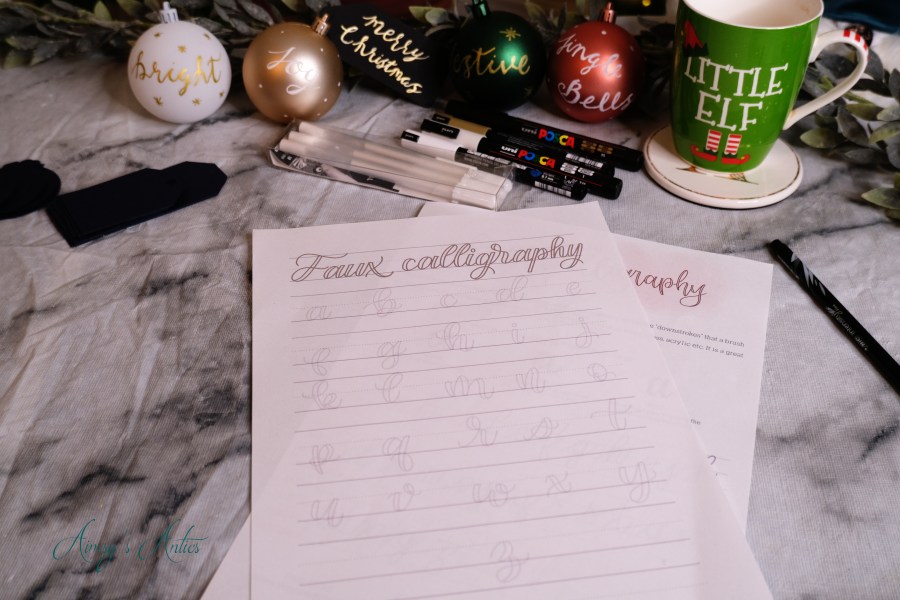 bright
Joy
Merry
Christmas
festive
Jingle
Bells
LITTLE
ELF
uni POSCA
uni POSCA
uni
Faux calligraphy
a b c d e
f g h i j
k l m n o
p q r s t
u v w x y
z
raphy
'downstrokes' that a brush
acrylic etc. It is a great
the
Aimzy's Antics